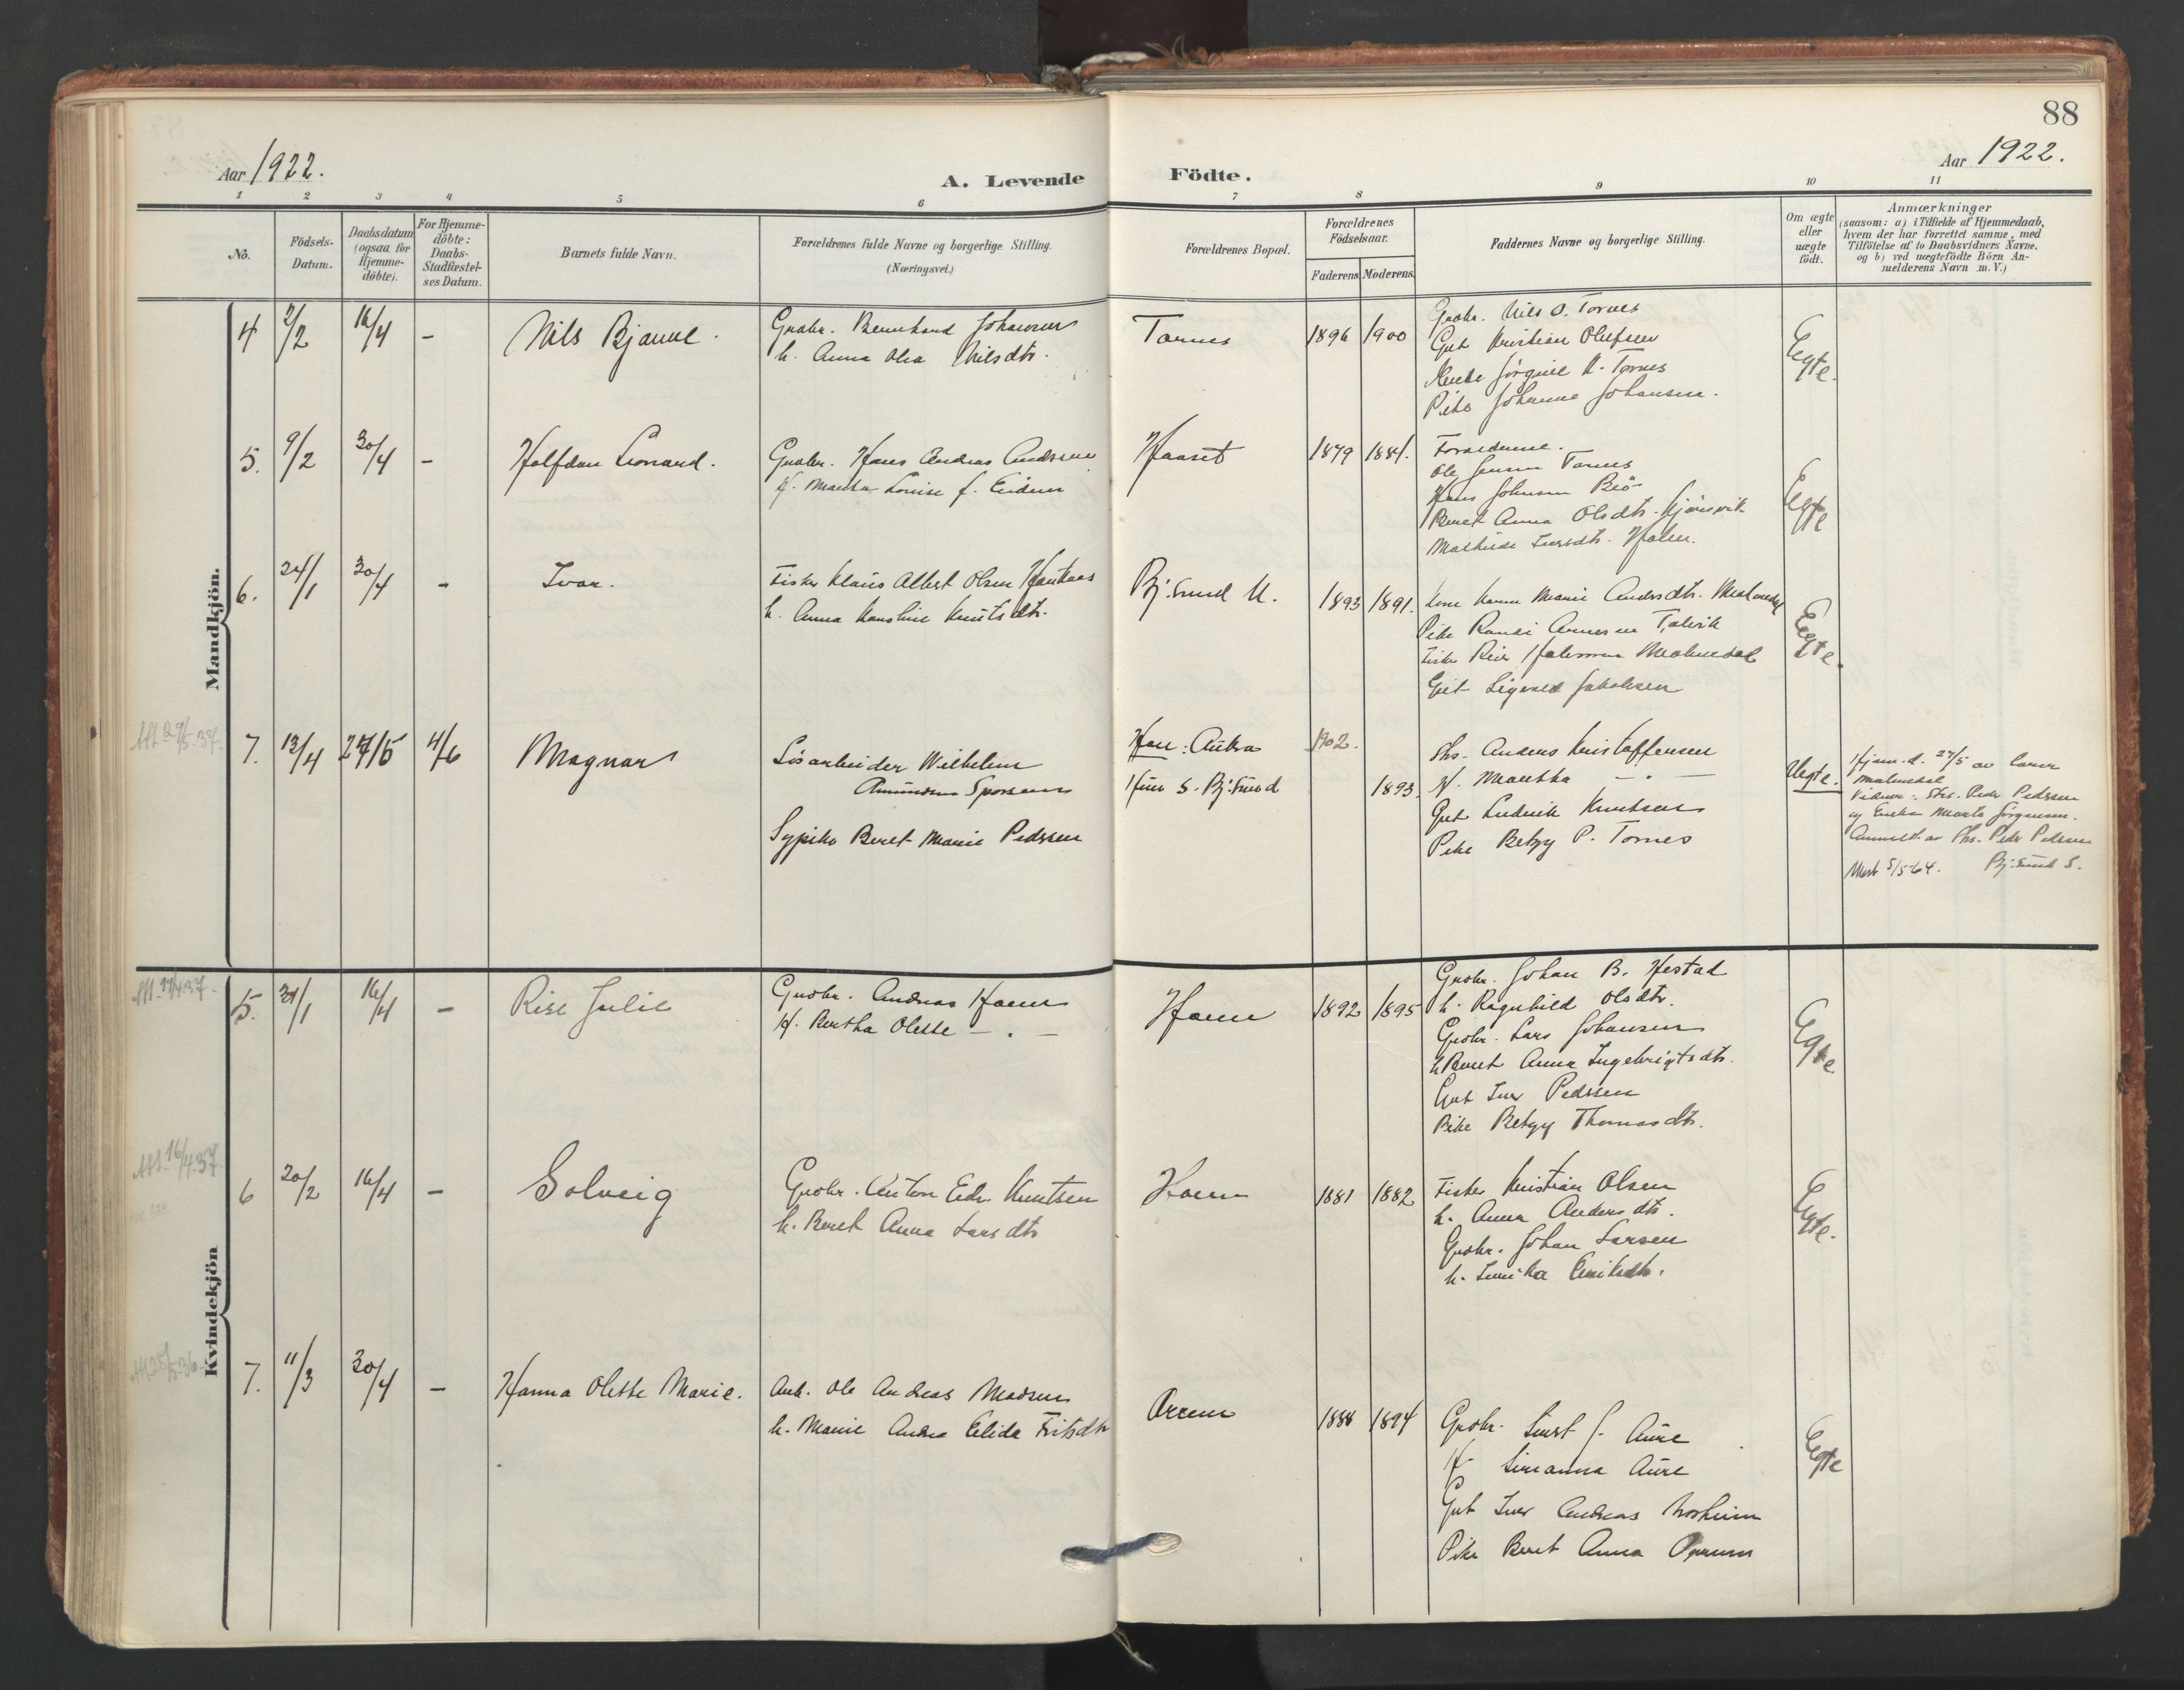 88
Aar 1922.
A. Levende Födte.
Aar 1922.
1 2 3 4 5 6 7 8 9 10 11
No.
Födsels-
Datum.
Daabsdatum
(ogsaa for
Hjemme-
döbte).
For Hjemme-
döbte:
Daabs-
Stadfæstel-
ses Datum.
Barnets fulde Navn.
Forældrenes fulde Navne og borgerlige Stilling.
(Næringsvei.)
Forældrenes Bopæl.
Forældrenes
Födselsaar.
Faderens. Moderens.
Faddernes Navne og borgerlige Stilling.
Om ægte
eller
uægte
födt.
Anmærkninger
(saasom: a) i Tilfælde af Hjemmedaab,
hvem der har forrettet samme, med
Tilföielse af to Daabsvidners Navne.
og b) ved uægtefödte Börn An-
melderens Navn m. V.)
Mandkjön.
4 2/2 16/4 - Nils Bjarne.
Grdbr. Bernhard Johansen
h. Anna Olea Nilsdtr.
Tornes 1896 1900
Grdbr. Nils O. Tornes
Gut Kristian Olufsen
Jørgine K. Tornes
Pike Johanna Johansen.
Egte.
5. 9/2 30/4 - Halfdan Leonard.
Grdbr. Hans Andreas Andersen
H. Martha Louise f. Eidem
Haaset 1879 1884.
Forældrene.
Ole Jensen Tornes
Hans Johnsen Bø
Beret Anna Olsdtr. Gjønsvik
Mathilde Iversdtr. Holen.
Egte
6. 24/1 30/4 - Ivar.
Fisker Klaus Albert Olsen Haukaas
h. Anna Karoline Knutsdtr.
Bj:sund U. 1893 1891.
Kone Karen Marie Andersdtr. Malmedal
Pike Randi Arnesen Talvik
Fisker Peer Halvorsen Malmedal
Gut Sigvald Jakobsen
Egte.
Att. 29/5-37. 7. 13/4 27/5 4/6 Magnar
Løsarbeider Wilhelm
Amundsen Sporsem
Sypike Beret Marie Pedersen
Han: Aukra
Hun S. Bj:sund
1902.
1893.
Hs. Anders Kristoffersen
H. Martha — " —
Gut Ludvik Knutsen
Pike Betzy P. Tornes
Uegte.
Hjem.d. 27/5 av Lærer
Malmedal
Vidner: Hs. Peder Pedersen
og Enke Marta Jørgensen.
Anmeldt av Hs. Peder Pedersen
Bj:sund S.
Død 5/5-64.
Kvindekjön
Att. 19/4 37. 5. 31/1 16/4 - Rise Julie
Grdbr. Andreas Haem
H. Bertha Olette — " —
Haem 1892 1895
Grdbr. Johan B. Hestad
h. Ragnhild Olsdtr.
Grdbr. Lars Johansen
h Beret Anna Ingebrigtsdtr.
Gut Iver Pedersen
Pike Betzy Thomasdtr.
Egte
Att. 16/4-37. 6 20/2 16/4 - Solveig
Grdbr. Anton Edv. Knutsen
h. Beret Anna Larsdtr
Haem 1881 1882
Fisker Kristian Olsen
h. Anna Andersdtr.
Grdbr. Johan Larsen
h. Eriksdtr.
Egte.
Att 25/5-36. 7. 11/3 30/4 - Hanna Olette Marie.
Arb. Ole Andreas Madsen
h. Marie Andrea Elida Fritsdtr
Orrem 1888 1894
Grdbr. Sivert J. Aure
H Sirianna Aure
Gut Iver Andreas Norheim
Pike Beret Anna Orrem
Egte